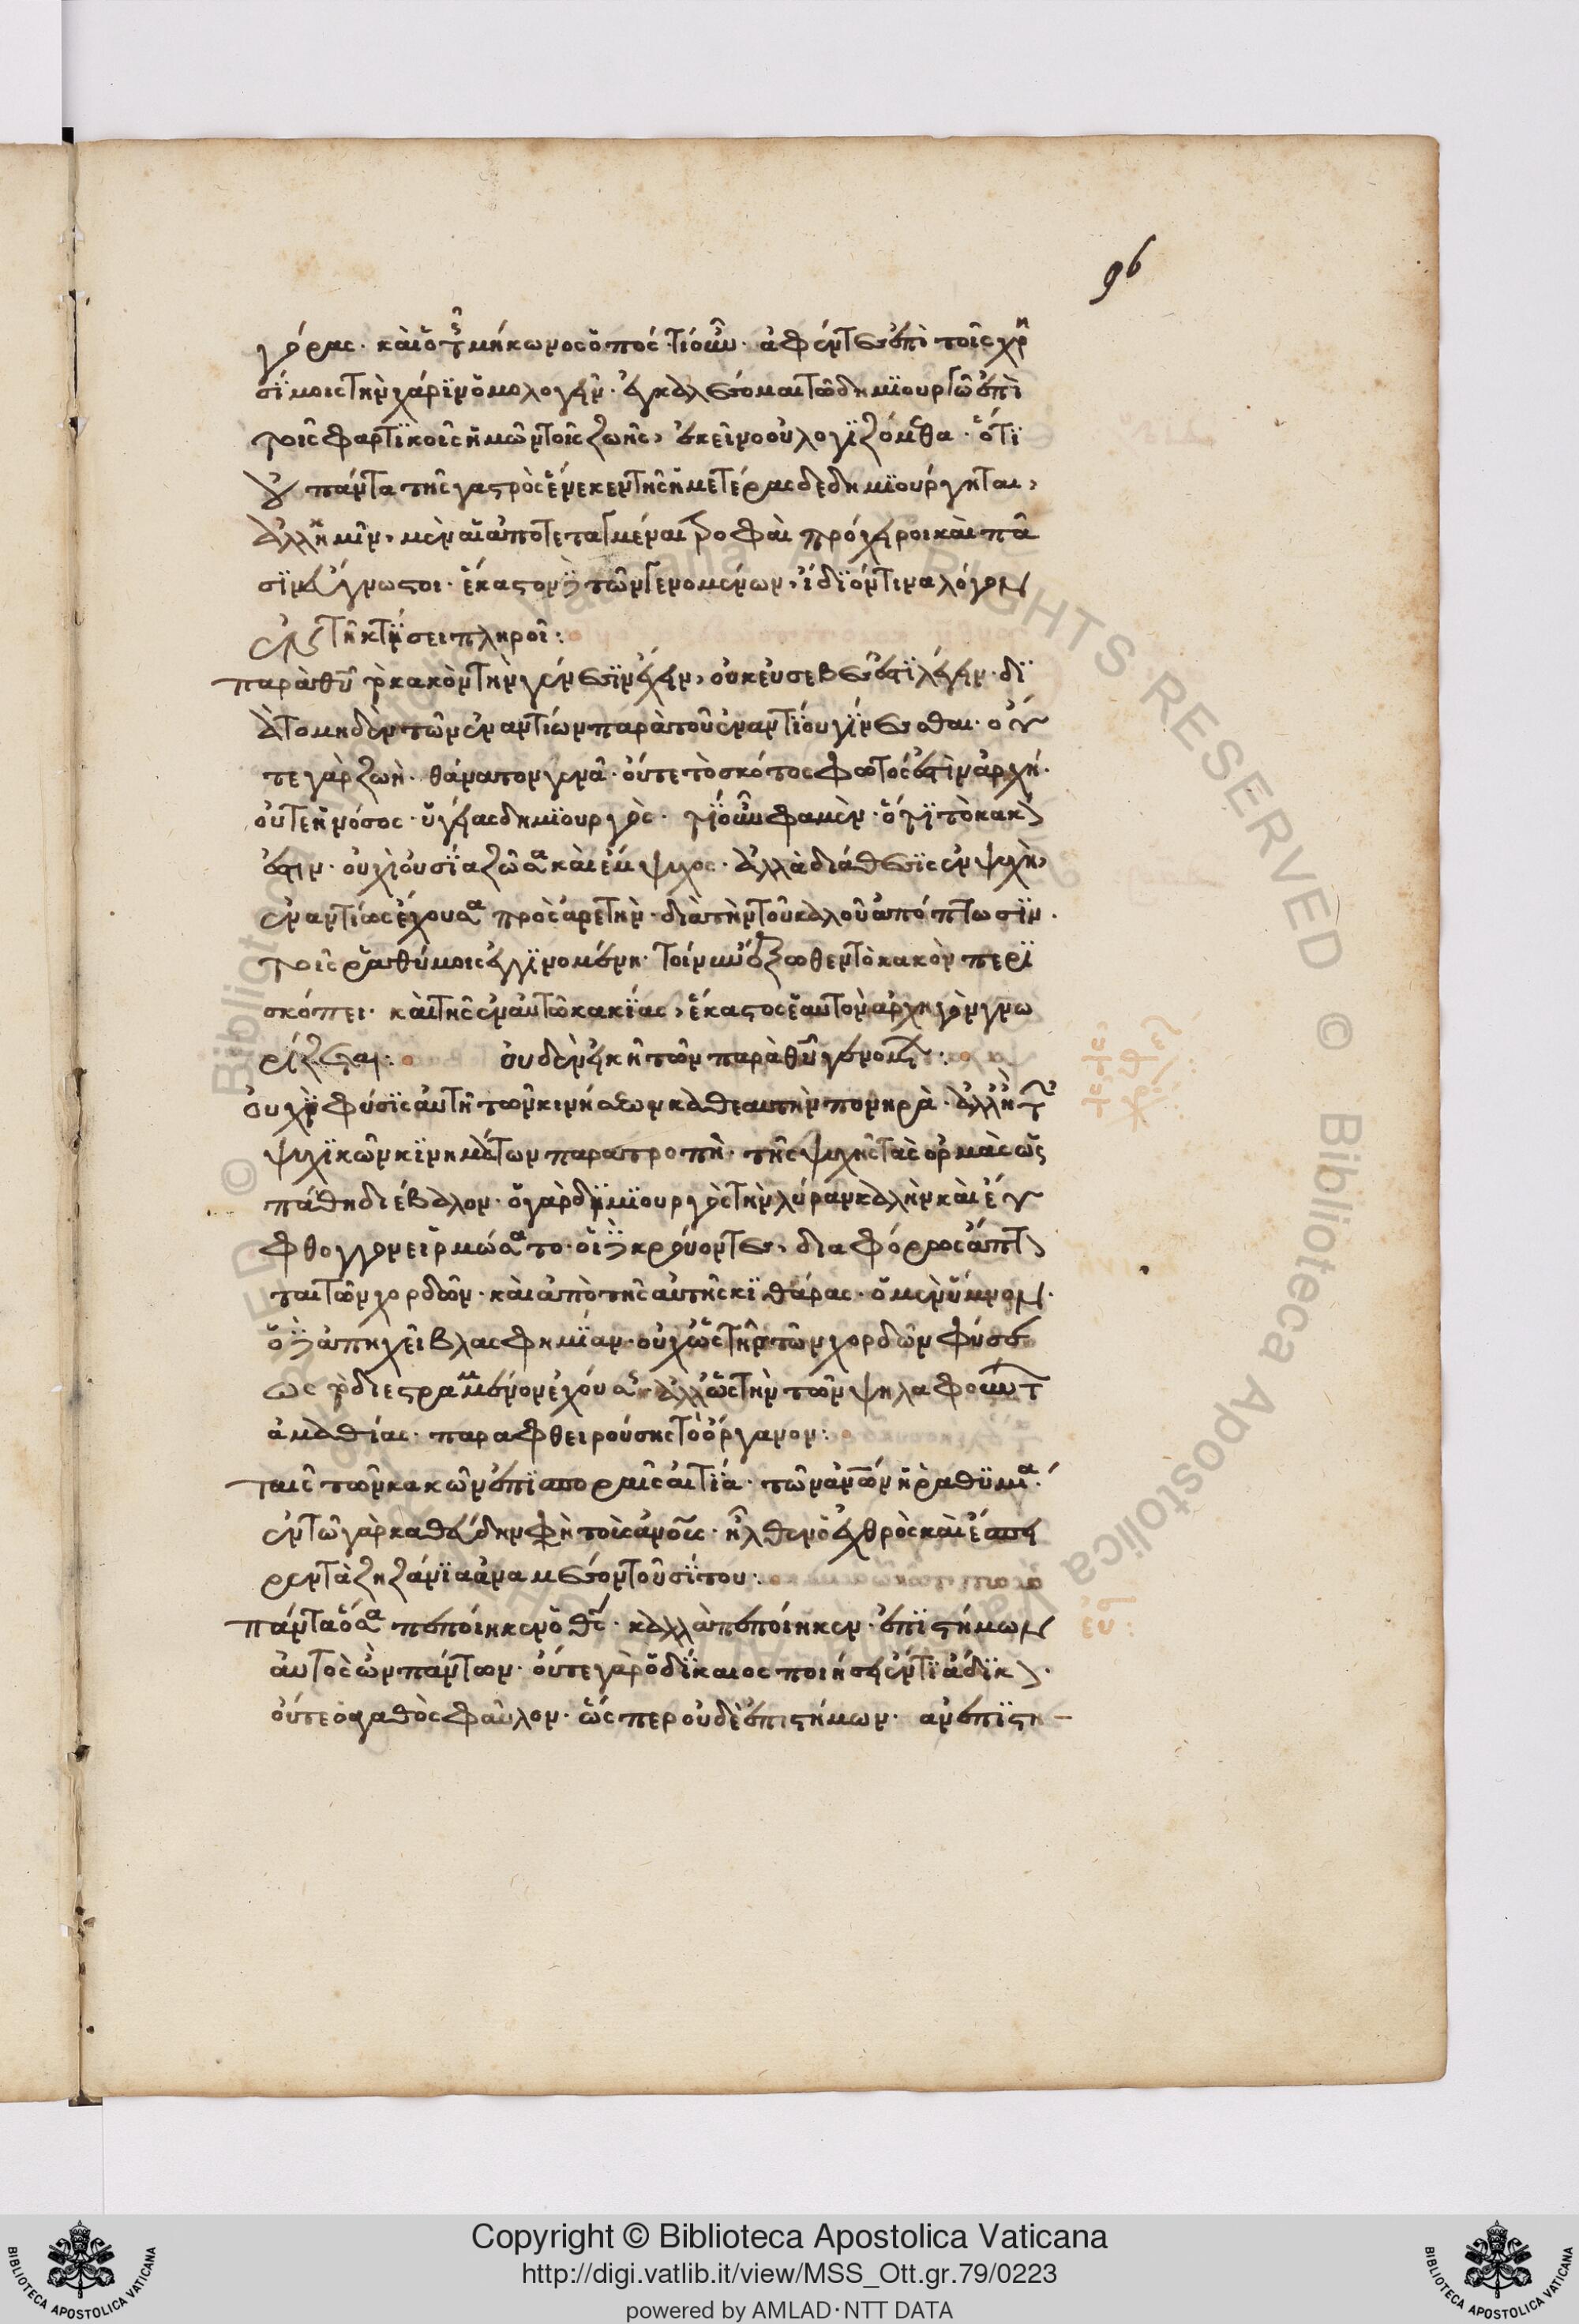 96
γόρας· καὶ ὁ τῆς μήκωνος ὁπός· τί οὖν· ἀφέντες ἐπὶ τοῖς χρη
σίμοις τὴν χάριν ὁμολογεῖν· ἐγκαλέσομαι τῶ δημιουργῶ ἐπὶ
τοῖς φθαρτικοῖς ἡμῶν τῆς ζωῆς, ἐκεῖνο οὐ λογιζόμεθα· ὅτι
οὐ πάντα τῆς γαστρὸς ἕνεκεν τῆς ἡμετέρας δεδημιούργηται,
ἀλλ' ἡμῖν, μὲν αἱ ἀποτεταγμέναι τροφαὶ πρόχειροι καὶ πᾶ
σιν εὔγνωστοι· ἕκαστον δὲ τῶν γενομένων, ἴδιόν τινα λόγον
ἐν τῆ κτίσει πληροῖ:
παρὰ θεοῦ τὸ κακὸν τὴν γένεσιν ἔχειν, οὐκ εὐσεβές ἐστι λέγειν· δι
ὰ τὸ μηδὲν τῶν ἐναντίων παρὰ τοῦ ἐναντίου γίνεσθαι· οὔ
τε γὰρ ζωὴ· θάνατον γεννᾶ· οὔτε τὸ σκότος φωτός ἐστὶν ἀρχή·
οὔτε ἡ νόσος· ὑγείας δημιουργὸς· τί οὖν φαμὲν· ὅτι τὸ κακόν
ἐστιν· οὐχὶ οὐσία ζῶσα καὶ ἔμψυχος· ἀλλὰ διάθεσις ἐν ψυχῆ,
ἐναντίως ἔχουσα πρὸς ἀρετὴν· διὰ τὴν τοῦ καλοῦ ἀπόπτωσιν·
τοῖς ῥαθύμοις ἐγγινομένη· τοίνυν ἔξωθεν τὸ κακὸν περι
σκόπει· καὶ τῆς ἐν αὐτῶ κακίας, ἕκαστος ἑαυτὸν ἀρχηγὸν γνω
ριζέτω: οὐδὲν εἰκῆ τῶν παρὰ θεοῦ γενομένων:
Οὐχ ἡ φύσις αὐτὴ τῶν κινήσεων καθ' ἑαυτὴν πονηρὰ· ἀλλ' ἡ τῶν
ψυχικῶν κινημάτων παρατροπὴ· τῆς ψυχῆς τὰς ὁρμὰς ὡς
πάθη διέβαλον· ὁ γὰρ δημιουργὸς τὴν λύραν καλὴν καὶ εὔ
φθογγον εἱρμώσατο· οἱ δὲ κρούοντες, διαφόρως ἅπτον
ται τῶν χορδῶν· καὶ ἀπὸ τῆς αὐτῆς κιθάρας· ὁ μὲν ὕμνον·
ὁ δὲ ἀπηχεῖ βλασφημίαν· οὐχ ὡς τῆς τῶν χορδῶν φύσε
ως τὸ διεστραμμένον ἐχούσης· ἀλλ' ὡς τὴν τῶν ψηλαφούντων
ἀμαθίας· παραφθειρούσης τὸ ὄργανον:
ταῖς τῶν κακῶν ἐπισποραῖς αἰτία· τῶν ἀνθρώπων ἡ ῥαθυμία:
ἐν τῶ γὰρ καθεύδειν φησὶ τοὺς ἀνθρώπους· ἦλθεν ὁ ἐχθρὸς καὶ ἔσπει
ρεν τὰ ζηζάνια ἀνὰ μέσον τοῦ σίτου:
πάντα ὅσα πεποίηκεν ὁ θεός· καλλὰ πεποίηκεν· ἐπιστήμων
αὐτὸς ὢν πάντων· οὔτε γὰρ ὁ δίκαιος ποιήσει ἔντι ἄδικον·
οὔτε ὁ ἀγαθὸς φαῦλον· ὥσπερ οὐδὲ ἐπιστήμων· ἀνεπιστη–
Copyright © Biblioteca Apostolica Vaticana
http://digi.vatlib.it/view/MSS_Ott.gr.79/0223
powered by AMLAD·NTT DATA